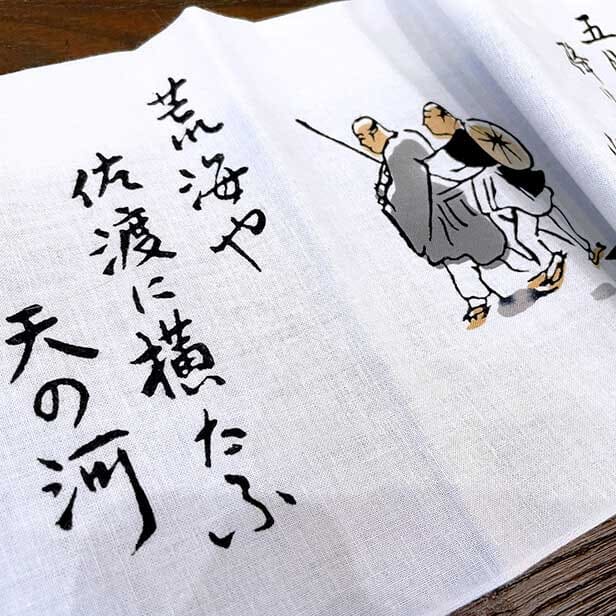 五月
荒海や
佐渡に横たふ
天の河